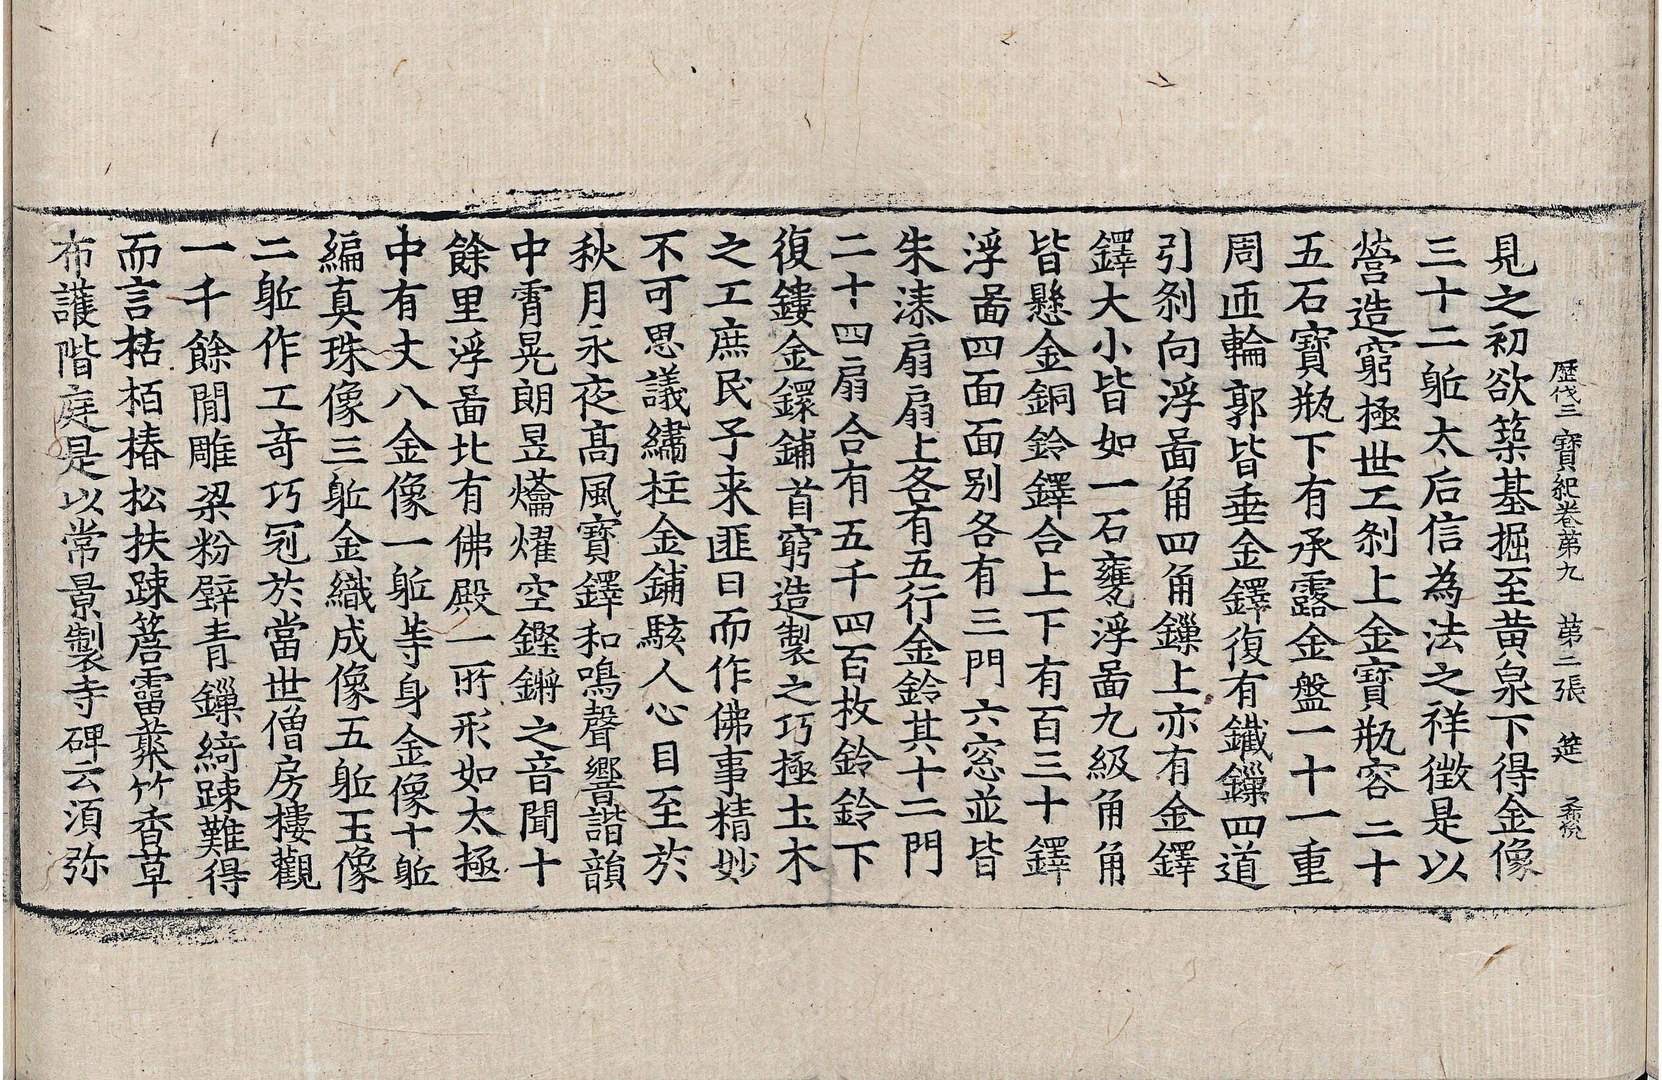 歷代三寶紀卷第九　第二張　筵　孟悅
見之初欲築基掘至黃泉下得金像
三十二躯太后信為法之祥徵是以
營造窮極世工刹上金寶瓶容二十
五石寶瓶下有承露金盤一十一重
周迊輪郭皆垂金鐸復有鐵鏁四道
引刹向浮啚角四角鏁上亦有金鐸
鐸大小皆如一石甕浮啚九級角角
皆懸金銅鈴鐸合上下有百三十鐸
浮啚四面面别各有三門六窓並皆
朱漆扇扇上各有五行金鈴其十二門
二十四扇合有五千四百枚鈴鈴下
復鏤金鐶鋪首窮造製之巧極土木
之工庶民子来匪日而作佛事精妙
不可思議繡柱金鋪駭人心目至於
秋月永夜髙風寶鐸和鳴聲響諧韻
中霄晃朗昱爚燿空鏗鏘之音聞十
餘里浮啚北有佛殿一所形如太極
中有丈八金像一躯等身金像十躯
編真珠像三躯金織成像五躯玉像
二躯作工竒巧冠於當世僧房樓觀
一千餘間雕梁粉壁青鏁綺踈難得
而言栝栢椿松扶踈簷霤藂竹香草
布護階庭是以常景製寺碑云湏弥